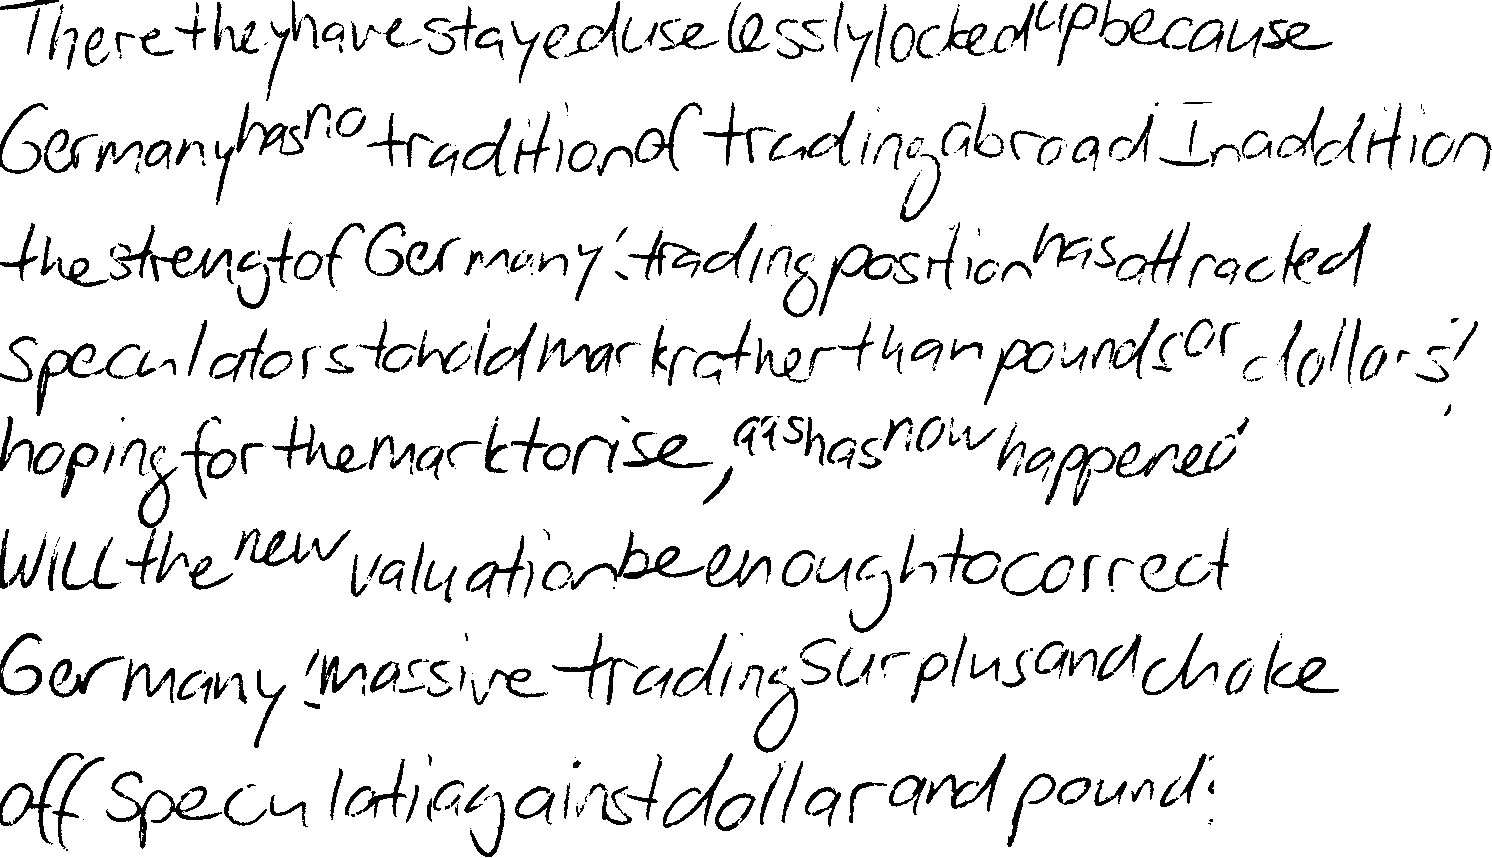 There they have stayed uselessly locked up because
Germany has no tradition of trading abroad In addition
the strengt of Germany's trading position has attracted
speculators to hold mark rather than pounds or dollars,
hoping for the mark to rise, aas has now happened
Will the new valuation be enough to correct
Germany's massive trading surplus and choke
off speculati against dollar and pound?